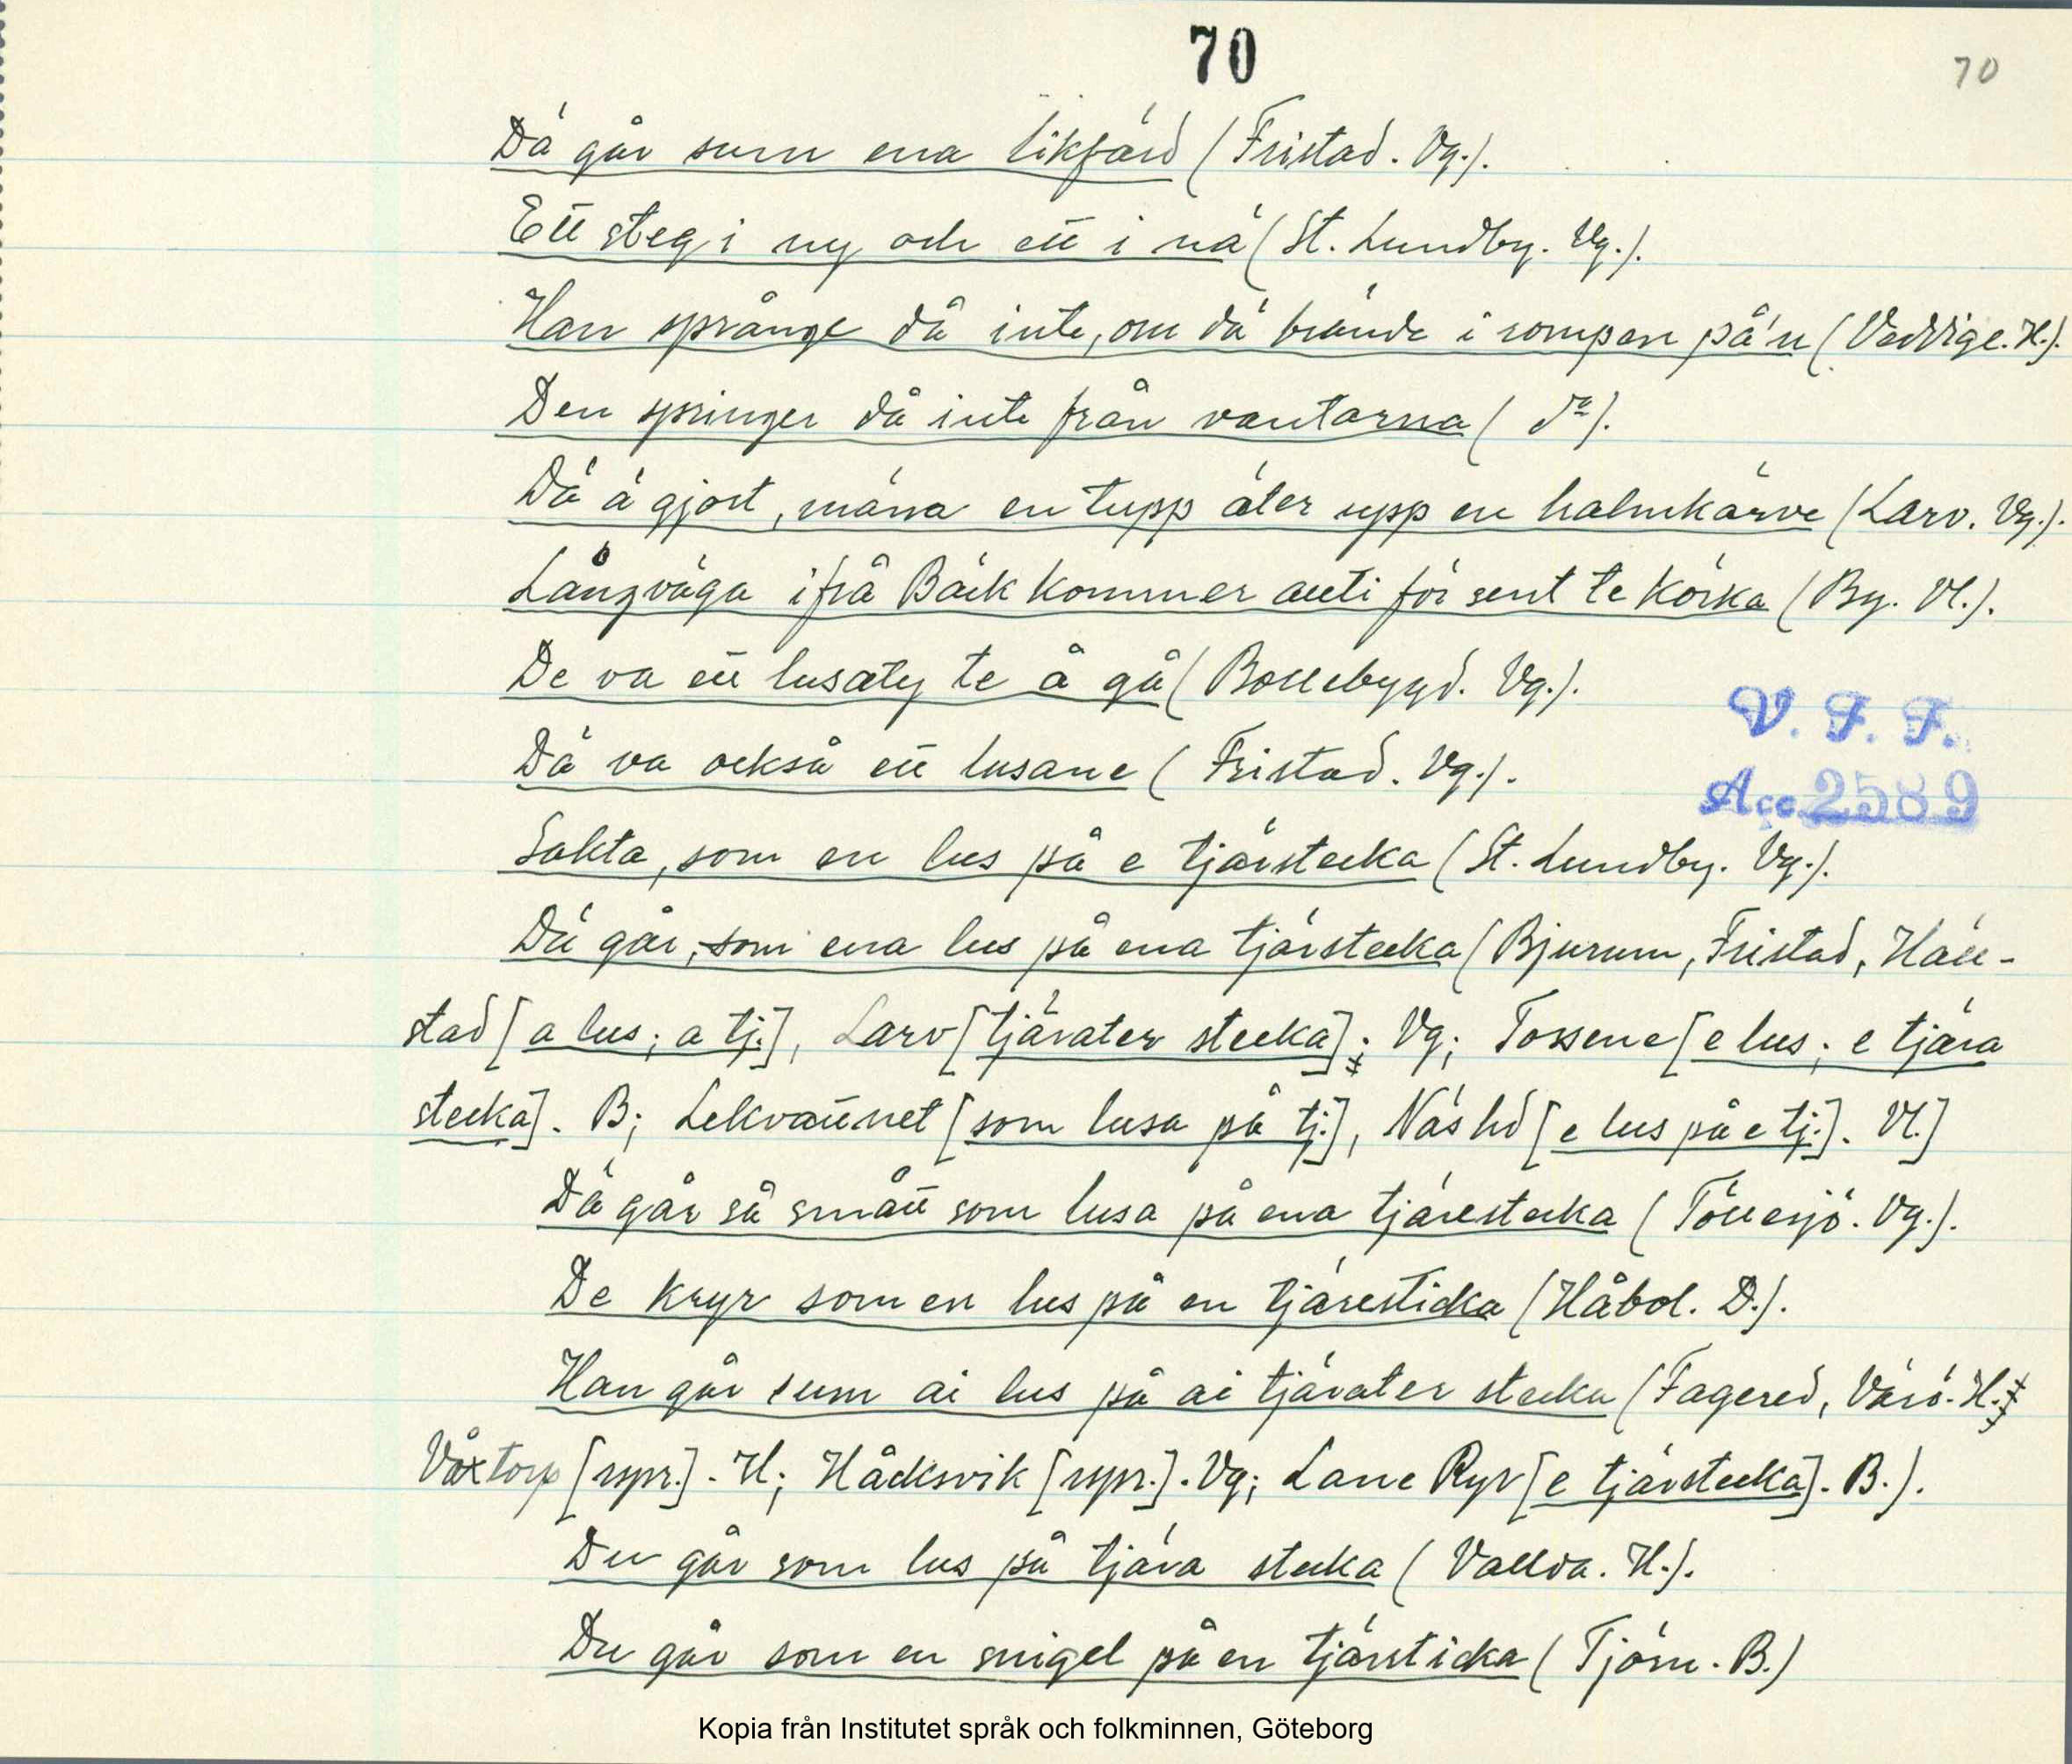 70
70
Dä går sum ena likfärd (Fristad. Vg.).
Ett steg i ny och ett i nä (St. Lundby. Vg.).
Han språnge då inte, om dä brände i rompen på'n (Veddige. H.).
Den springer då inte från vantarna ( do).
Dä ä gjort, männa en tupp äter upp en halmkärve (Larv. Vg.).
Långväga ifrå Bäck kommer allti för sent te körka (By. Vl.).
De va ett lusaty te å gå (Bollebygd. Vg.).
Dä va också ett lusane (Fristad. Vg.).
Sakta, som en lus på e tjärstecka (St. Lundby. Vg.).
V. F. F.
Acc. 2589
Dä går, som ena lus på ena tjärstecka (Bjurum, Fristad, Häll-
stad [a lus; a tj.], Larv [tjärater stecka]; Vg; Tossene [e lus; e tjära
stecka]. B; Lekvattnet [som lusa på tj.], Näs hd [e lus på e tj.]. Vl.]
Dä går så smått som lusa på ena tjärestecka (Töllesjö. Vg.).
De kryr som en lus på en tjäresticka (Håbol. D.).
Han går sum ai lus på ai tjärater stecka (Fagered, Värö. H.;
Våxtorp [spr.]. H; Håcksvik [spr.]. Vg; Lane Ryr [e tjärstecka]. B.).
Du går som lus på tjära stecka (Vallda. H.).
Du går som en snigel på en tjärsticka (Tjörn. B.)
Kopia från Institutet språk och folkminnen, Göteborg